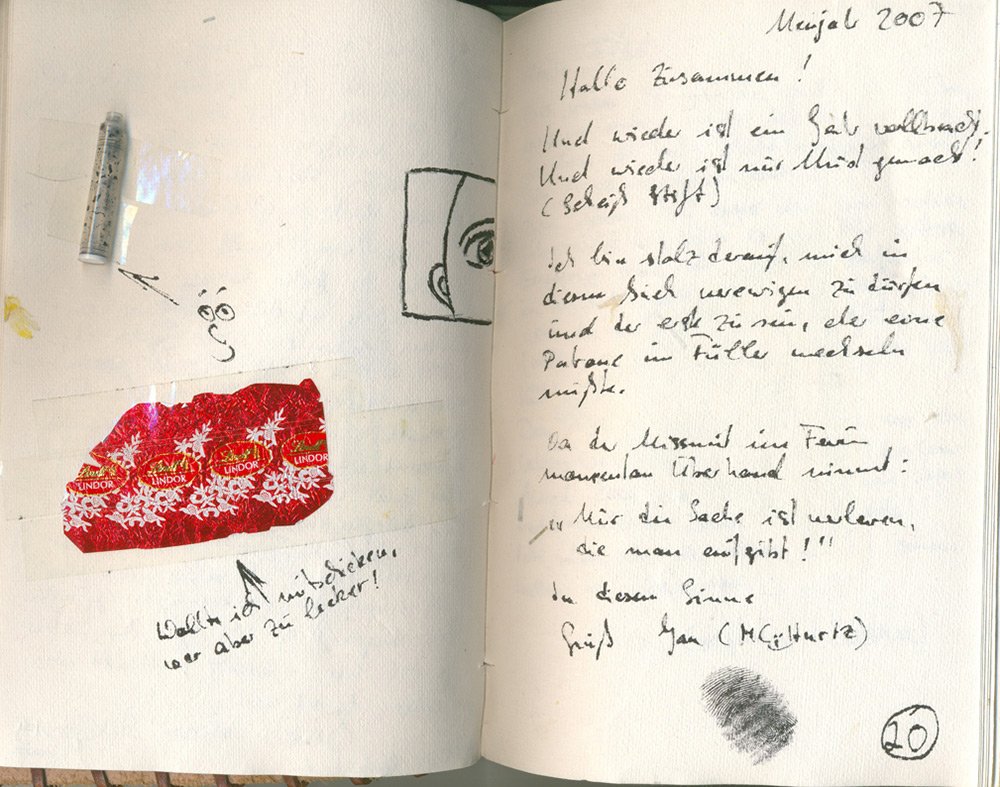 Wollte ich mitschicken,
war aber zu lecker!
Lindt
LINDOR
Lindt
LINDOR
Lindt
LINDOR
Lindt
LINDOR
Neujahr 2007
Hallo Zusammen!
Und wieder ist ein Jahr vollbracht.
Und wieder ist nur Müd gemacht!
(Scheiß Stift)
Ich bin stolz darauf, mich in
diesem Buch verewigen zu dürfen
und der erste zu sein, der eine
Patrone im Füller wechseln
mußte.
Da der Missmut im Forum
momentan Überhand nimmt:
"Nur die Sache ist verloren,
die man aufgibt!"
In diesem Sinne
Gruß Jan (MC Hurtz)
20